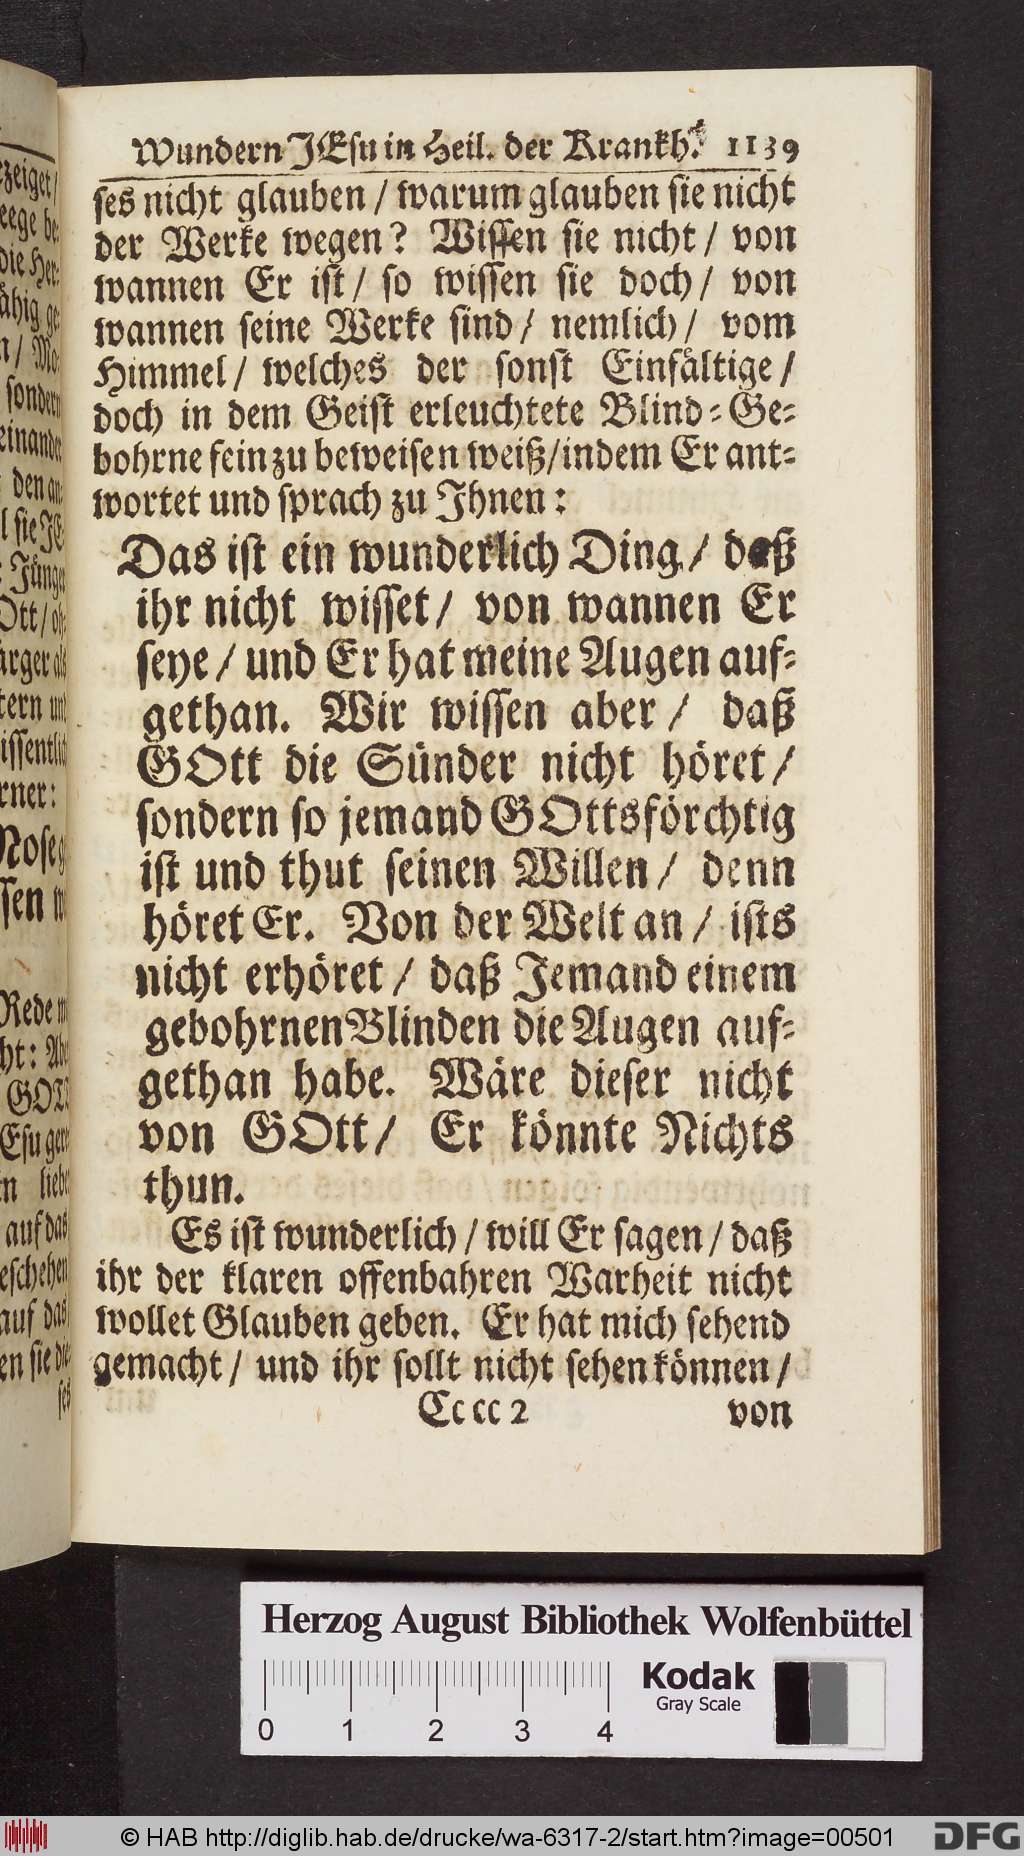 Wundern JEsu in Heil. der Krankh. 1139
ses nicht glauben / warum glauben sie nicht
der Werke wegen? Wissen sie nicht / von
wannen Er ist / so wissen sie doch / von
wannen seine Werke sind / nemlich / vom
Himmel / welches der sonst Einfältige /
doch in dem Geist erleuchtete Blind-Ge-
bohrne fein zu beweisen weiß / indem Er ant-
wortet und sprach zu Ihnen:
Das ist ein wunderlich Ding / daß
ihr nicht wisset / von wannen Er
seye / und Er hat meine Augen auf-
gethan. Wir wissen aber / daß
GOtt die Sünder nicht höret /
sondern so jemand GOttsförchtig
ist und thut seinen Willen / denn
höret Er. Von der Welt an / ists
nicht erhöret / daß Jemand einem
gebohrnen Blinden die Augen auf-
gethan habe. Wäre dieser nicht
von GOtt / Er könnte Nichts
thun.
Es ist wunderlich / will Er sagen / daß
ihr der klaren offenbahren Warheit nicht
wollet Glauben geben. Er hat mich sehend
gemacht / und ihr sollt nicht sehen können /
Cc cc 2 von
zeiget /
sondern
einander
den an-
l sie JE-
Ott /
ärger als
tern und
rner:
Rede
ht:
GOTT
auf das
eschehen
auf das
en sie die-
ses
Herzog August Bibliothek Wolfenbüttel
0 1 2 3 4
Kodak
Gray Scale
© HAB http://diglib.hab.de/drucke/wa-6317-2/start.htm?image=00501
DFG